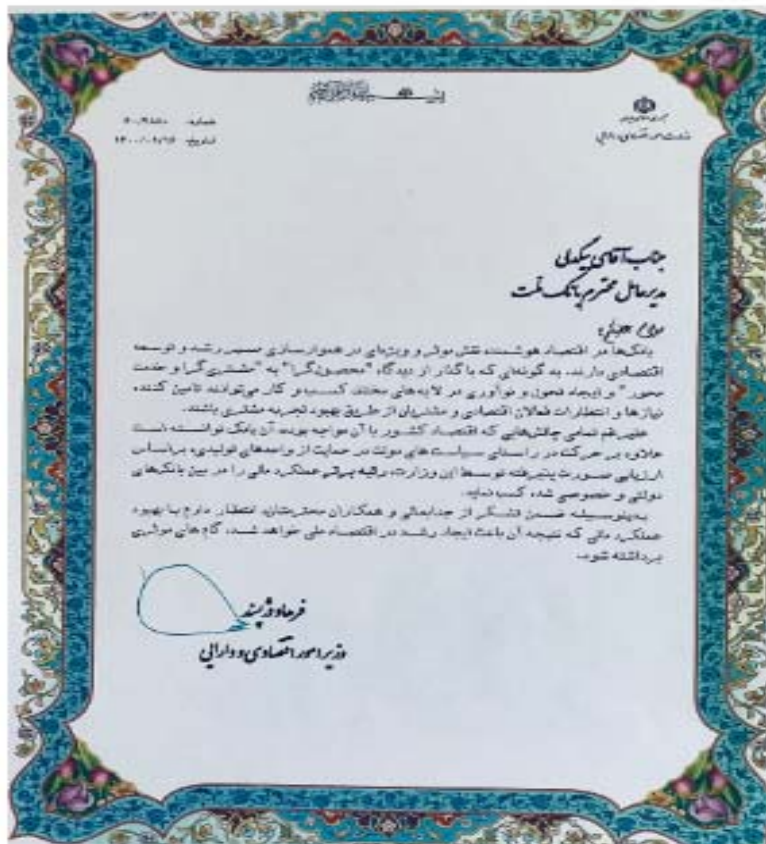 شماره:
تاریخ:
جناب آقای بیگدلی
مدیرعامل محترم بانک ملت
بانک‌ها در اقتصاد هوشمند، نقش موثر و ویژه‌ای در هموارسازی مسیر رشد و توسعه
اقتصادی دارند. به گونه‌ای که با گذار از دیدگاه "محصول‌گرا" به "مشتری‌گرا و خدمت
محور" و ایجاد تحول و نوآوری در لایه‌های مختلف کسب و کار می‌توانند تامین کننده
نیازها و انتظارات فعالان اقتصادی و مشتریان از طریق بهبود تجربه مشتری باشند.
علیرغم تمامی چالش‌هایی که اقتصاد کشور با آن مواجه بوده، آن بانک توانسته است
علاوه بر حرکت در راستای سیاست های دولت در حمایت از واحدهای تولیدی، براساس
ارزیابی صورت پذیرفته توسط این وزارت، رتبه برتر عملکرد مالی را در بین بانک‌های
دولتی و خصوصی شده کسب نماید.
بدینوسیله ضمن تشکر از جنابعالی و همکاران محترمتان، انتظار دارم با بهبود
عملکرد مالی که نتیجه آن باعث ایجاد رشد در اقتصاد ملی خواهد شد، گام های موثری
برداشته شود.
فرهاد دژپسند
وزیر امور اقتصادی و دارایی